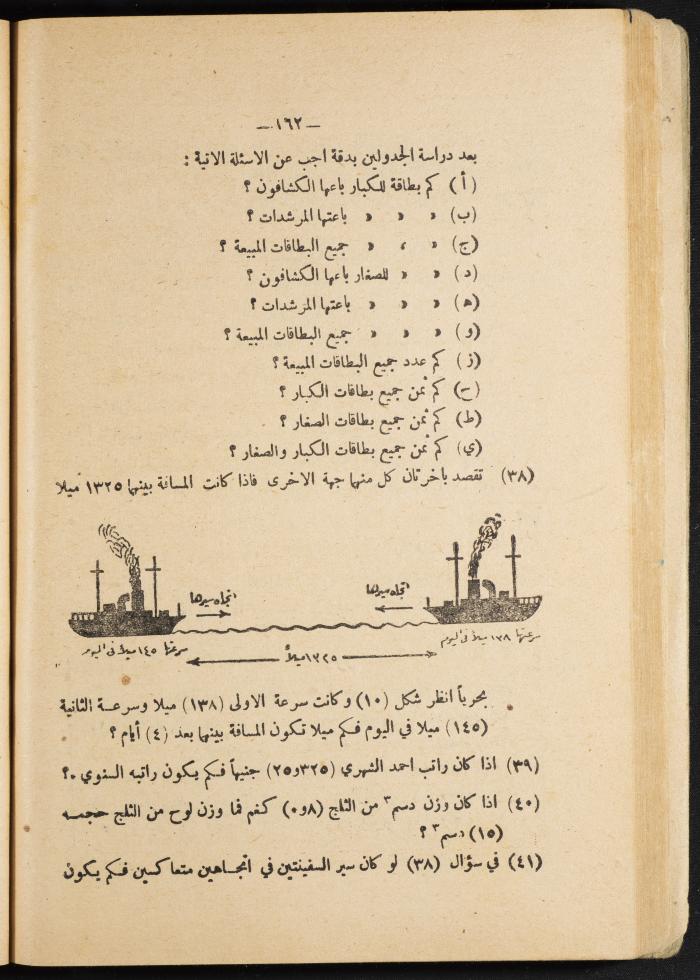 — ١٦٢ —
بعد دراسة الجدولين بدقة اجب عن الاسئلة الاتية :
(أ) كم بطاقة للكبار باعها الكشافون ؟
(ب) » » » باعتها المرشدات ؟
(ج) » » » جميع البطاقات المبيعة ؟
(د) » » للصغار باعها الكشافون ؟
(ه) » » » باعتها المرشدات ؟
(و) » » » جميع البطاقات المبيعة ؟
(ز) كم عدد جميع البطاقات المبيعة ؟
(ح) كم ثمن جميع بطاقات الكبار ؟
(ط) كم ثمن جميع بطاقات الصغار ؟
(ي) كم ثمن جميع بطاقات الكبار والصغار ؟
(٣٨) تقصد باخرتان كل منهما جهة الاخرى فاذا كانت المسافة بينهما ١٣٢٥ ميلا
اتجاه سيرها
اتجاه سيرها
سرعتها ١٣٨ ميلاً في اليوم
سرعتها ١٤٥ ميلاً في اليوم
١٣٢٥ ميلاً
بحرياً انظر شكل (١٠) وكانت سرعة الاولى (١٣٨) ميلا وسرعة الثانية
(١٤٥) ميلا في اليوم فكم ميلا تكون المسافة بينهما بعد (٤) أيام ؟
(٣٩) اذا كان راتب احمد الشهري (٣٢٥و٢٥) جنيهاً فكم يكون راتبه السنوي ؟
(٤٠) اذا كان وزن دسم٣ من الثلج (٨و٠) كغم فما وزن لوح من الثلج حجمه
(١٥) دسم٣ ؟
(٤١) في سؤال (٣٨) لو كان سير السفينتين في اتجاهين متعاكسين فكم يكون